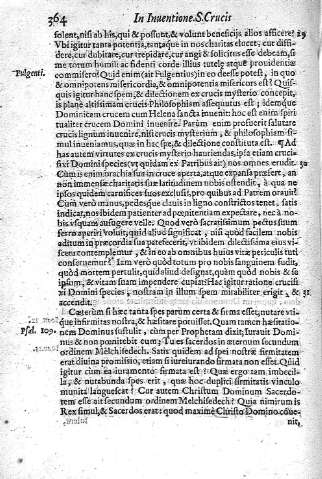 364 In Inuentione S. Crucis
solent, nisi ab his, qui & possunt, & volunt beneficijs alios afficere? 29
Vbi igitur tanta potentia, tantaque in nos charitas elucet, cur diffidere,
cur dubitare, cur trepidare, cur angi & solicitus esse debeam, si
me totum humili ac fidenti corde illius tutelæ atque prouidentiæ
Pulgenti. commisero? Quid enim (ait Fulgentius) in eo deesse potest, in quo
& omnipotens misericordia, & omnipotentia misericors est? Quisquis
igitur hanc spem, & dilectionem ex crucis mysterio concepit,
is planè altissimam crucis Philosophiam assequutus est; idemque
Dominicam crucem cum Helena sancta inuenit: hoc est enim spiritualiter
crucem Domini inuenire. Parùm enim profuerit salutare
crucis lignum inuenire, nisi crucis mysterium, & philosophiam simul
inueniamus, quæ in hac spe, & dilectione constituta est. ¶ Ad
has autem virtutes ex crucis mysterio hauriendas, ipsa etiam crucifixi
Domini species (vt quidam ex Patribus ait) nos omnes erudit. 30
Cum is enim brachia sua in cruce aperta, atque expansa præsert, an
non immensæ charitatis suæ latitudinem nobis ostendit, à qua ne
ipsos quidem carnifices suos exclusit, pro quibus ad Patrem orauit?
Cùm verò manus, pedesque clauis in ligno constrictos tenet, satis
indicat, nos ibidem patienter ad pœnitentiam expectare, nec à nobis
vsquam aufugere velle. Quòd verò sacratissimum pectus suum
ferro aperiri voluit, quid aliud significat, nisi quòd facilem nobis
aditum in præcordia sua patefecerit, vt ibidem dilectissima eius viscera
contemplentur, & in eo ab omnibus huius vitæ periculis tuti
conseruemur? Iam verò quòd totum pro nobis sanguinem fudit,
quòd mortem pertulit, quid aliud designat, quàm quòd nobis & saipsum,
& vitam suam impendere cupiat? Hac igitur ratione crucifixi
Domini species, nostram in illum spem mirabiliter erigit, & 31
accendit.
Cæterùm si hæc tanta spes parum certa & firma esset, nutare vtique
infirmitas nostra, & hæsitare potuisset. Quam tamen hæsitationem
Psal. 109. Dominus sustulit, cùm per Prophetam dixit, Iurauit Dominus
& non pœnitebit eum: Tu es sacerdos in æternum secundum
ordinem Melchisedech. Satis quidem ad spei nostræ firmitatem
erat diuina promissio, etiam si iureiurando firmata non esset. Quid
igitur cùm ea iuramento firmata est? Quæ ergo tam imbecilla,
& nutabunda spes erit, quæ hoc duplici firmitatis vinculo
munita languescat? Cur autem Christum Dominum Sacerdotem
esse ait secundum ordinem Melchisedech? Quia nimirum is
Rex simul, & Sacerdos erat: quod maximè Christo Domino conuenit,